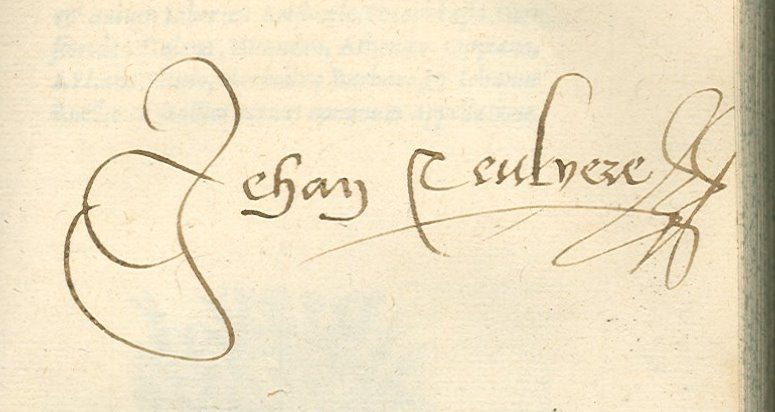 Jehan Teulvere